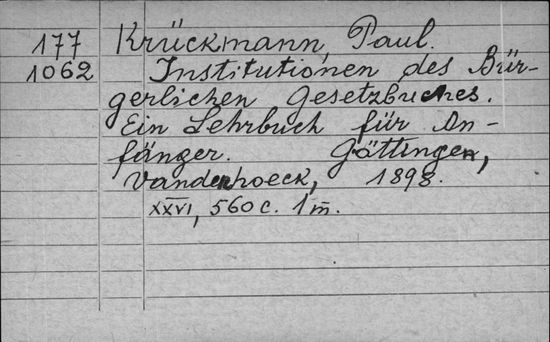 177 Krückmann, Paul.
1062 Institutionen des Bür-
gerlichen Gesetzbuches.
Ein Lehrbuch für An-
fänger. Göttingen,
Vandenhoeck, 1898.
XXVI, 560 c. 1 т.